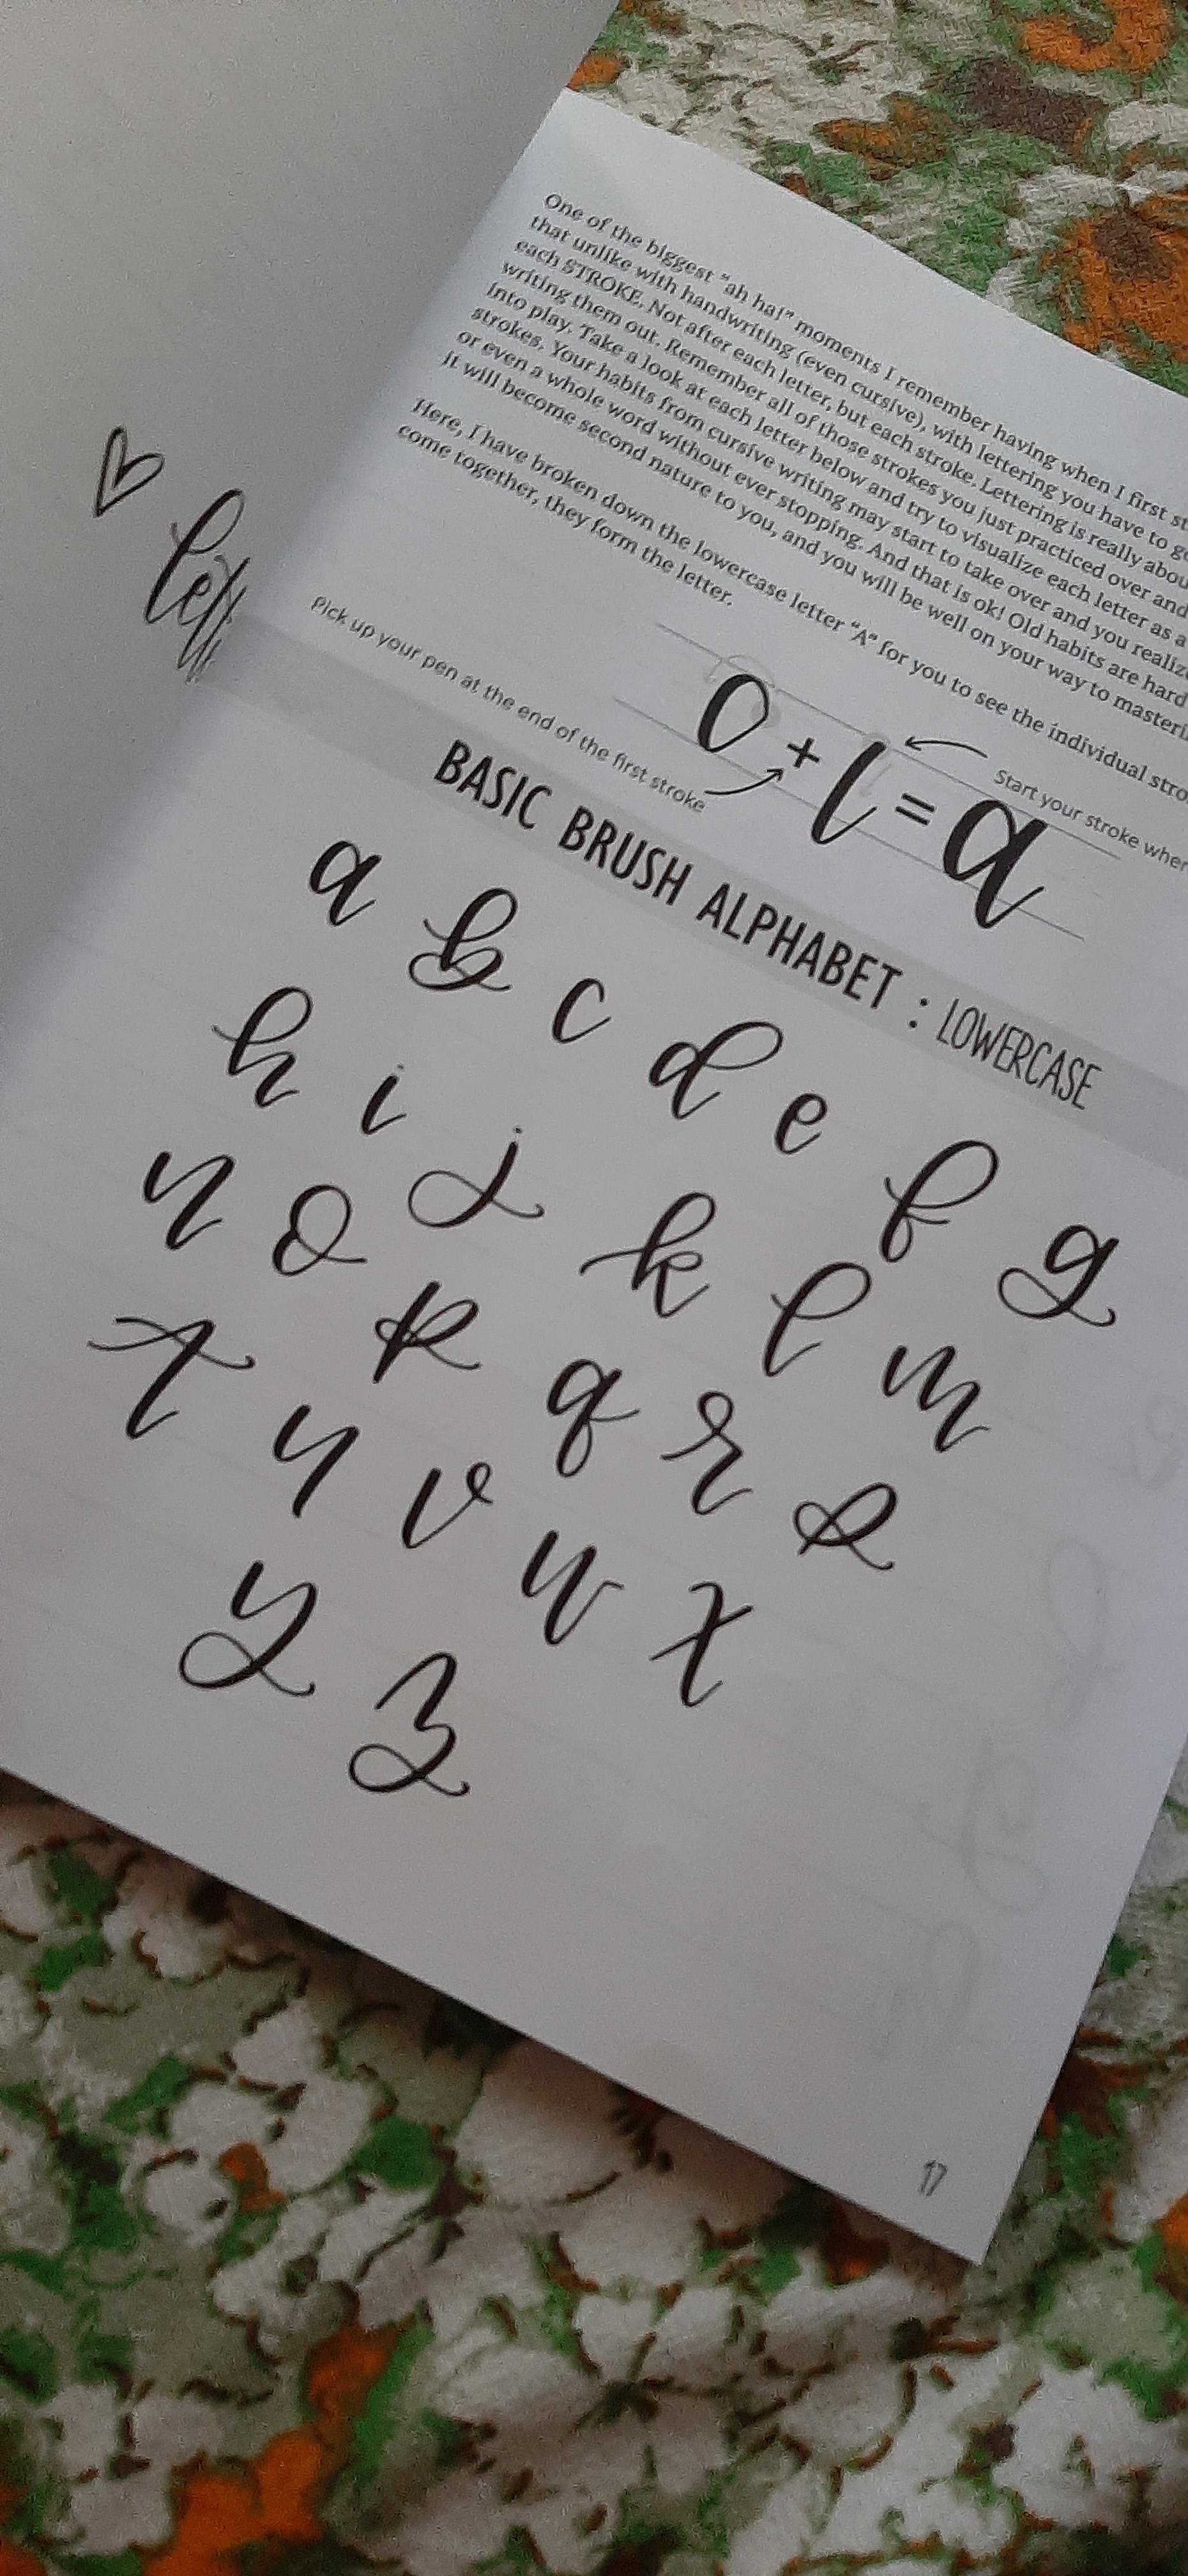 One of the biggest "ah ha!" moments I remember having when I first
that unlike with handwriting (even cursive), with lettering you have to
each STROKE. Not after each letter, but each stroke. Lettering is really
writing them out. Remember all of those strokes you just practiced over and
into play. Take a look at each letter below and try to visualize each letter as a
strokes. Your habits from cursive writing may start to take over and you
or even a whole word without ever stopping. And that is ok! Old habits are hard
it will become second nature to you, and you will be well on your way to
Here, I have broken down the lowercase letter "A" for you to see the individual
come together, they form the letter.
Start your stroke
o + l = a
Pick up your pen at the end of the first stroke
BASIC BRUSH ALPHABET : LOWERCASE
a b c d e f g
h i j k l m
n o p q r s
t u v w x
y z
17